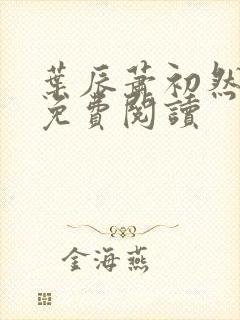 葉辰蕭初然
免費閱讀
金海燕